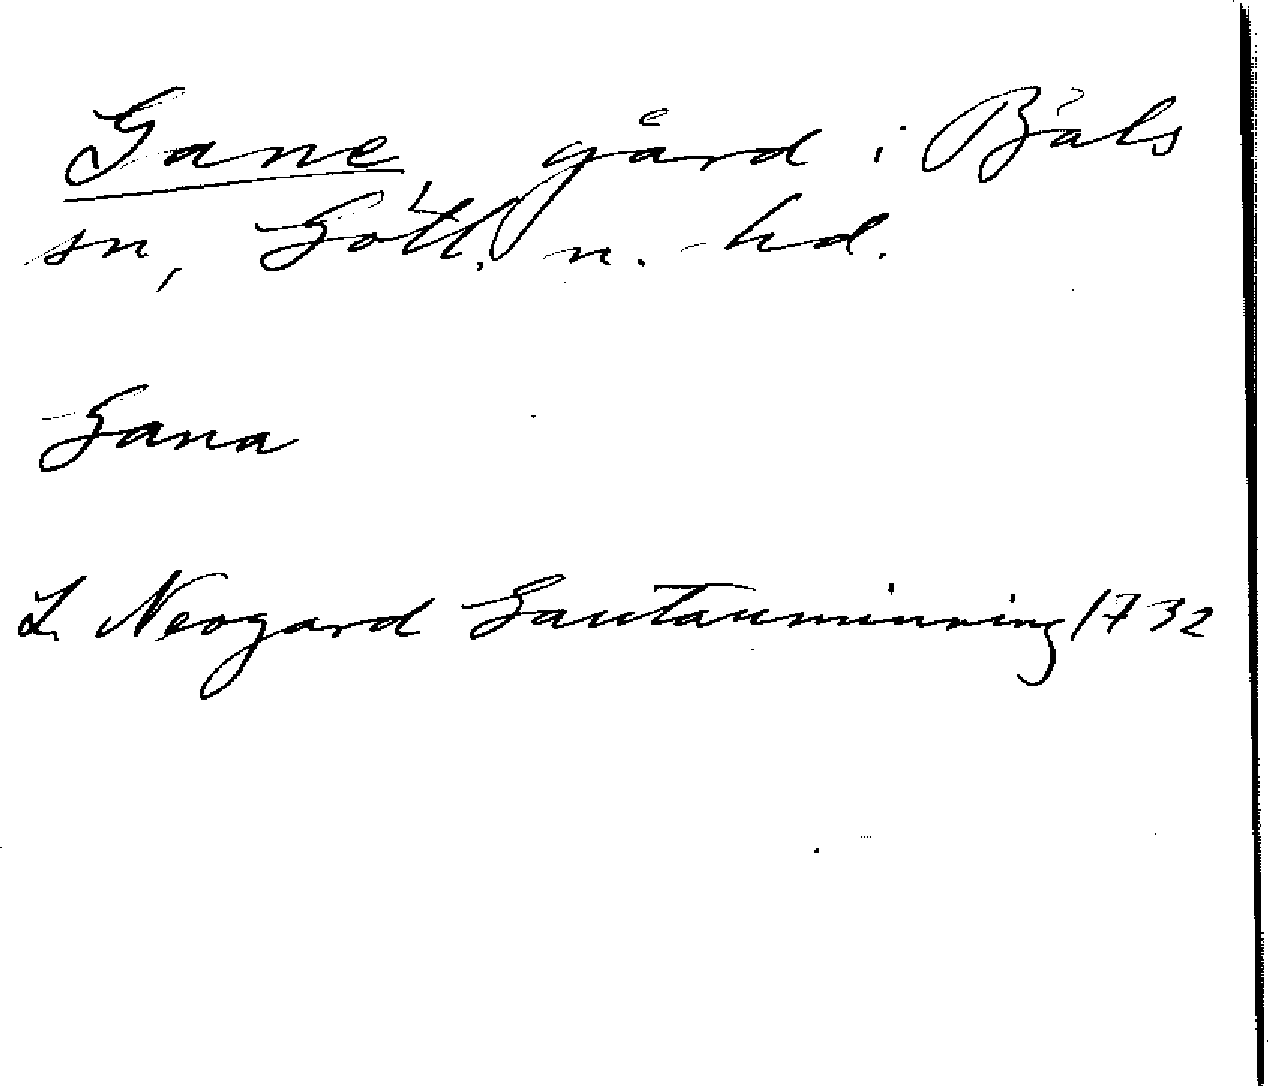 Gane gård i Bäls
sn, Gotl. n. hd.
Gana
L Neogard Gautauminning 1732